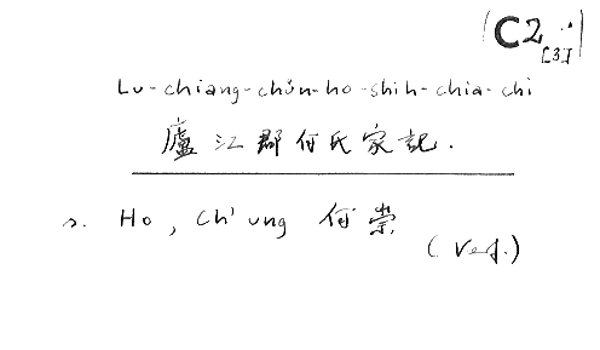 (C2 ∴)
[3]
Lu-chiang-chün-ho-shih-chia-chi
廬江郡何氏家記.
s. Ho, Ch'ung 何崇
(Verf.)